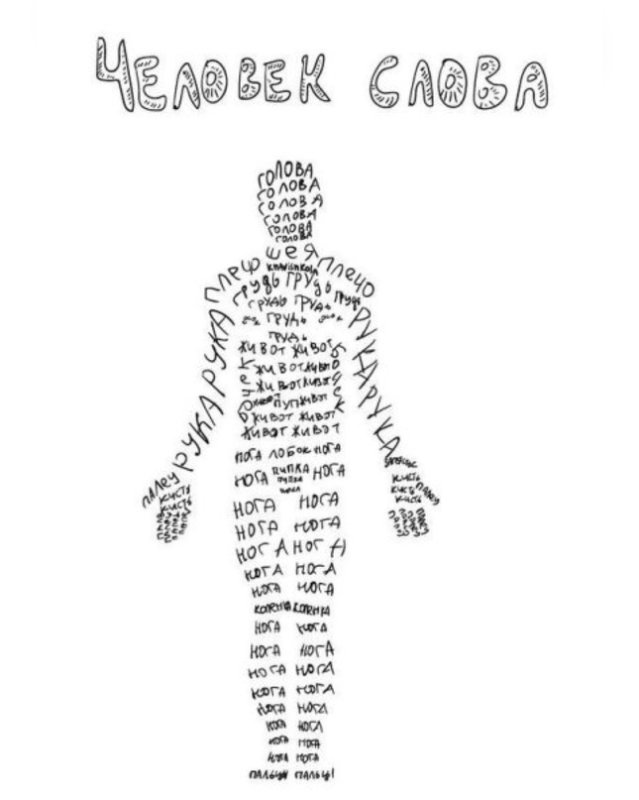 ЧЕЛОВЕК СЛОВА
ГОЛОВА
ГОЛОВА
ГОЛОВА
ГОЛОВА
ГОЛОВА
ГОЛОВА
ШЕЯ
ПЛЕЧО ПЛЕЧО
ГРУДЬ ГРУДЬ
ГРУДЬ ГРУДЬ ГРУДЬ
ГРУДЬ
ГРУДЬ
РУКА РУКА РУКА РУКА
ЖИВОТ ЖИВОТ
ЖИВОТ ЖИВОТ
ЖИВОТ ЖИВОТ
ПУП ЖИВОТ
ЖИВОТ ЖИВОТ
ЖИВОТ ЖИВОТ
НОГА ЛОБОК НОГА
НОГА ПИПКА НОГА
ПИПКА
ЗАПЯСТЬЕ
ПАЛЕЦ КИСТЬ КИСТЬ
КИСТЬ ПАЛЕЦ
КИСТЬ
КИСТЬ
НОГА НОГА
НОГА НОГА
НОГА НОГА
НОГА НОГА
НОГА НОГА
КОЛЕНКА КОЛЕНКА
НОГА НОГА
НОГА НОГА
НОГА НОГА
НОГА НОГА
НОГА НОГА
НОГА НОГА
НОГА НОГА
НОГА НОГА
ПАЛЬЦЫ ПАЛЬЦЫ